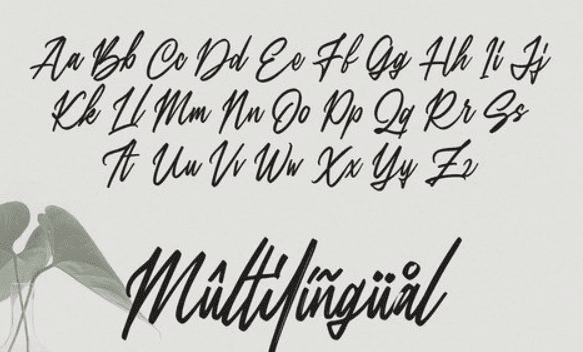 Aa Bb Cc Dd Ee Ff Gg Hh Ii Jj
Kk Ll Mm Nn Oo Pp Qq Rr Ss
Tt Uu Vv Ww Xx Yy Zz
Mûltilíñgüål